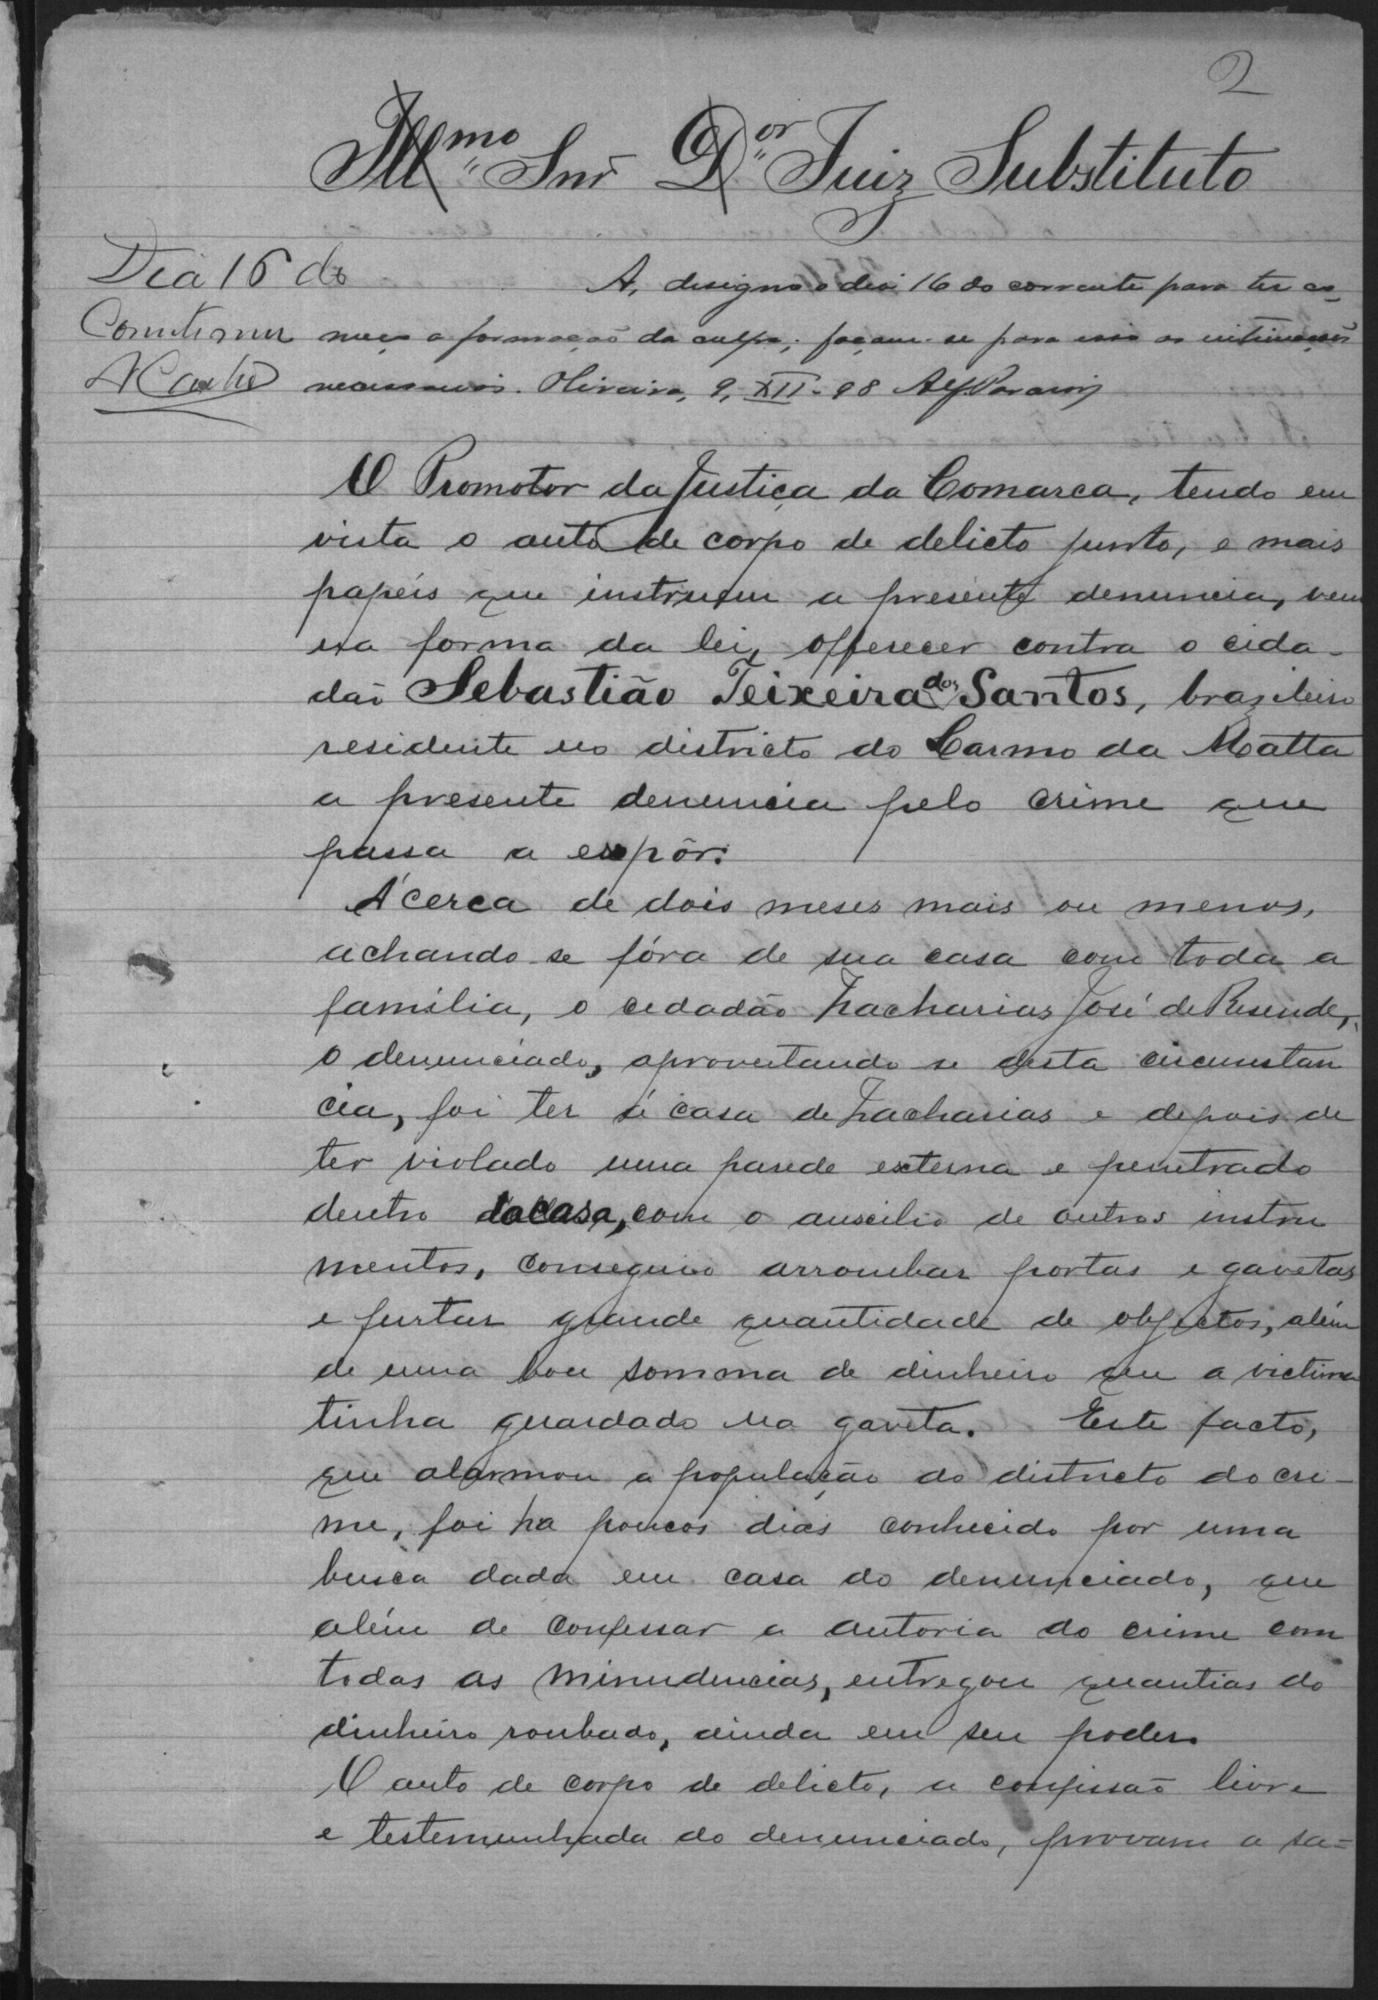 2
Ill.mo Snr D.or Juiz Substituto
Dia 16 do
A, designo o dia 16 do corrente para ter co-
meço a formação da culpa; façam-se para isso as intimações
necessarias. Oliveira, 9, XII-98
O Promotor da Justiça da Comarca, tendo em
vista o auto de corpo de delicto junto, e mais
papeis que instruem a presente denuncia, vem
na forma da lei, offerecer contra o cida-
dão Sebastião Teixeira dos Santos, brazileiro
residente no districto do Carmo da Matta
a presente denuncia pelo crime que
passa a expôr:
Ácerca de dois meses mais ou menos,
achando-se fóra de sua casa com toda a
familia, o cidadão Zacharias José de Resende,
o denunciado, aproveitando se desta circumstan
cia, foi ter á casa de Zacharias e depois de
ter violado uma parede externa e penetrado
dentro da casa, com o auscilio de outros instru
mentos, conseguio arrombar portas e gavetas
e furtar grande quantidade de objectos, além
de uma boa somma de dinheiro que a victima
tinha guardado na gaveta. Este facto,
que alarmou a população do districto do cri-
me, foi ha poucos dias conhecido por uma
busca dada em casa do denunciado, que
além de confessar a autoria do crime com
todas as minudencias, entregou quantias do
dinheiro roubado, ainda em seu poder.
O auto de corpo de delicto, a confissão livre
e testemunhada do denunciado, provam a sa=